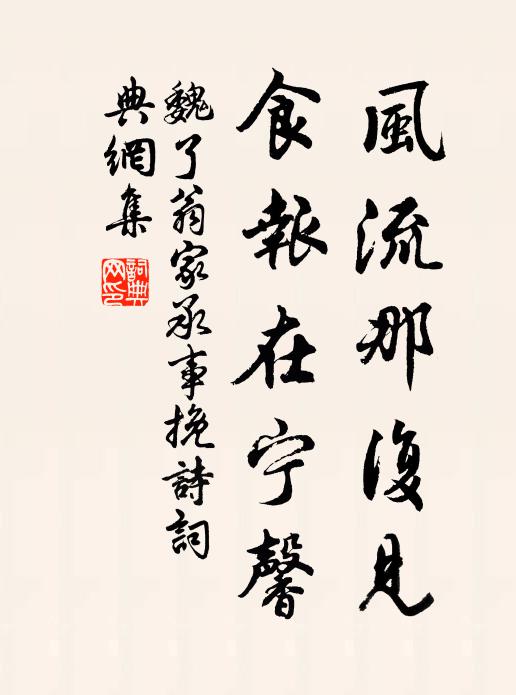 風流那復見
食報在宁馨
魏了翁家承事挽詩詞
典網集
詞典网印